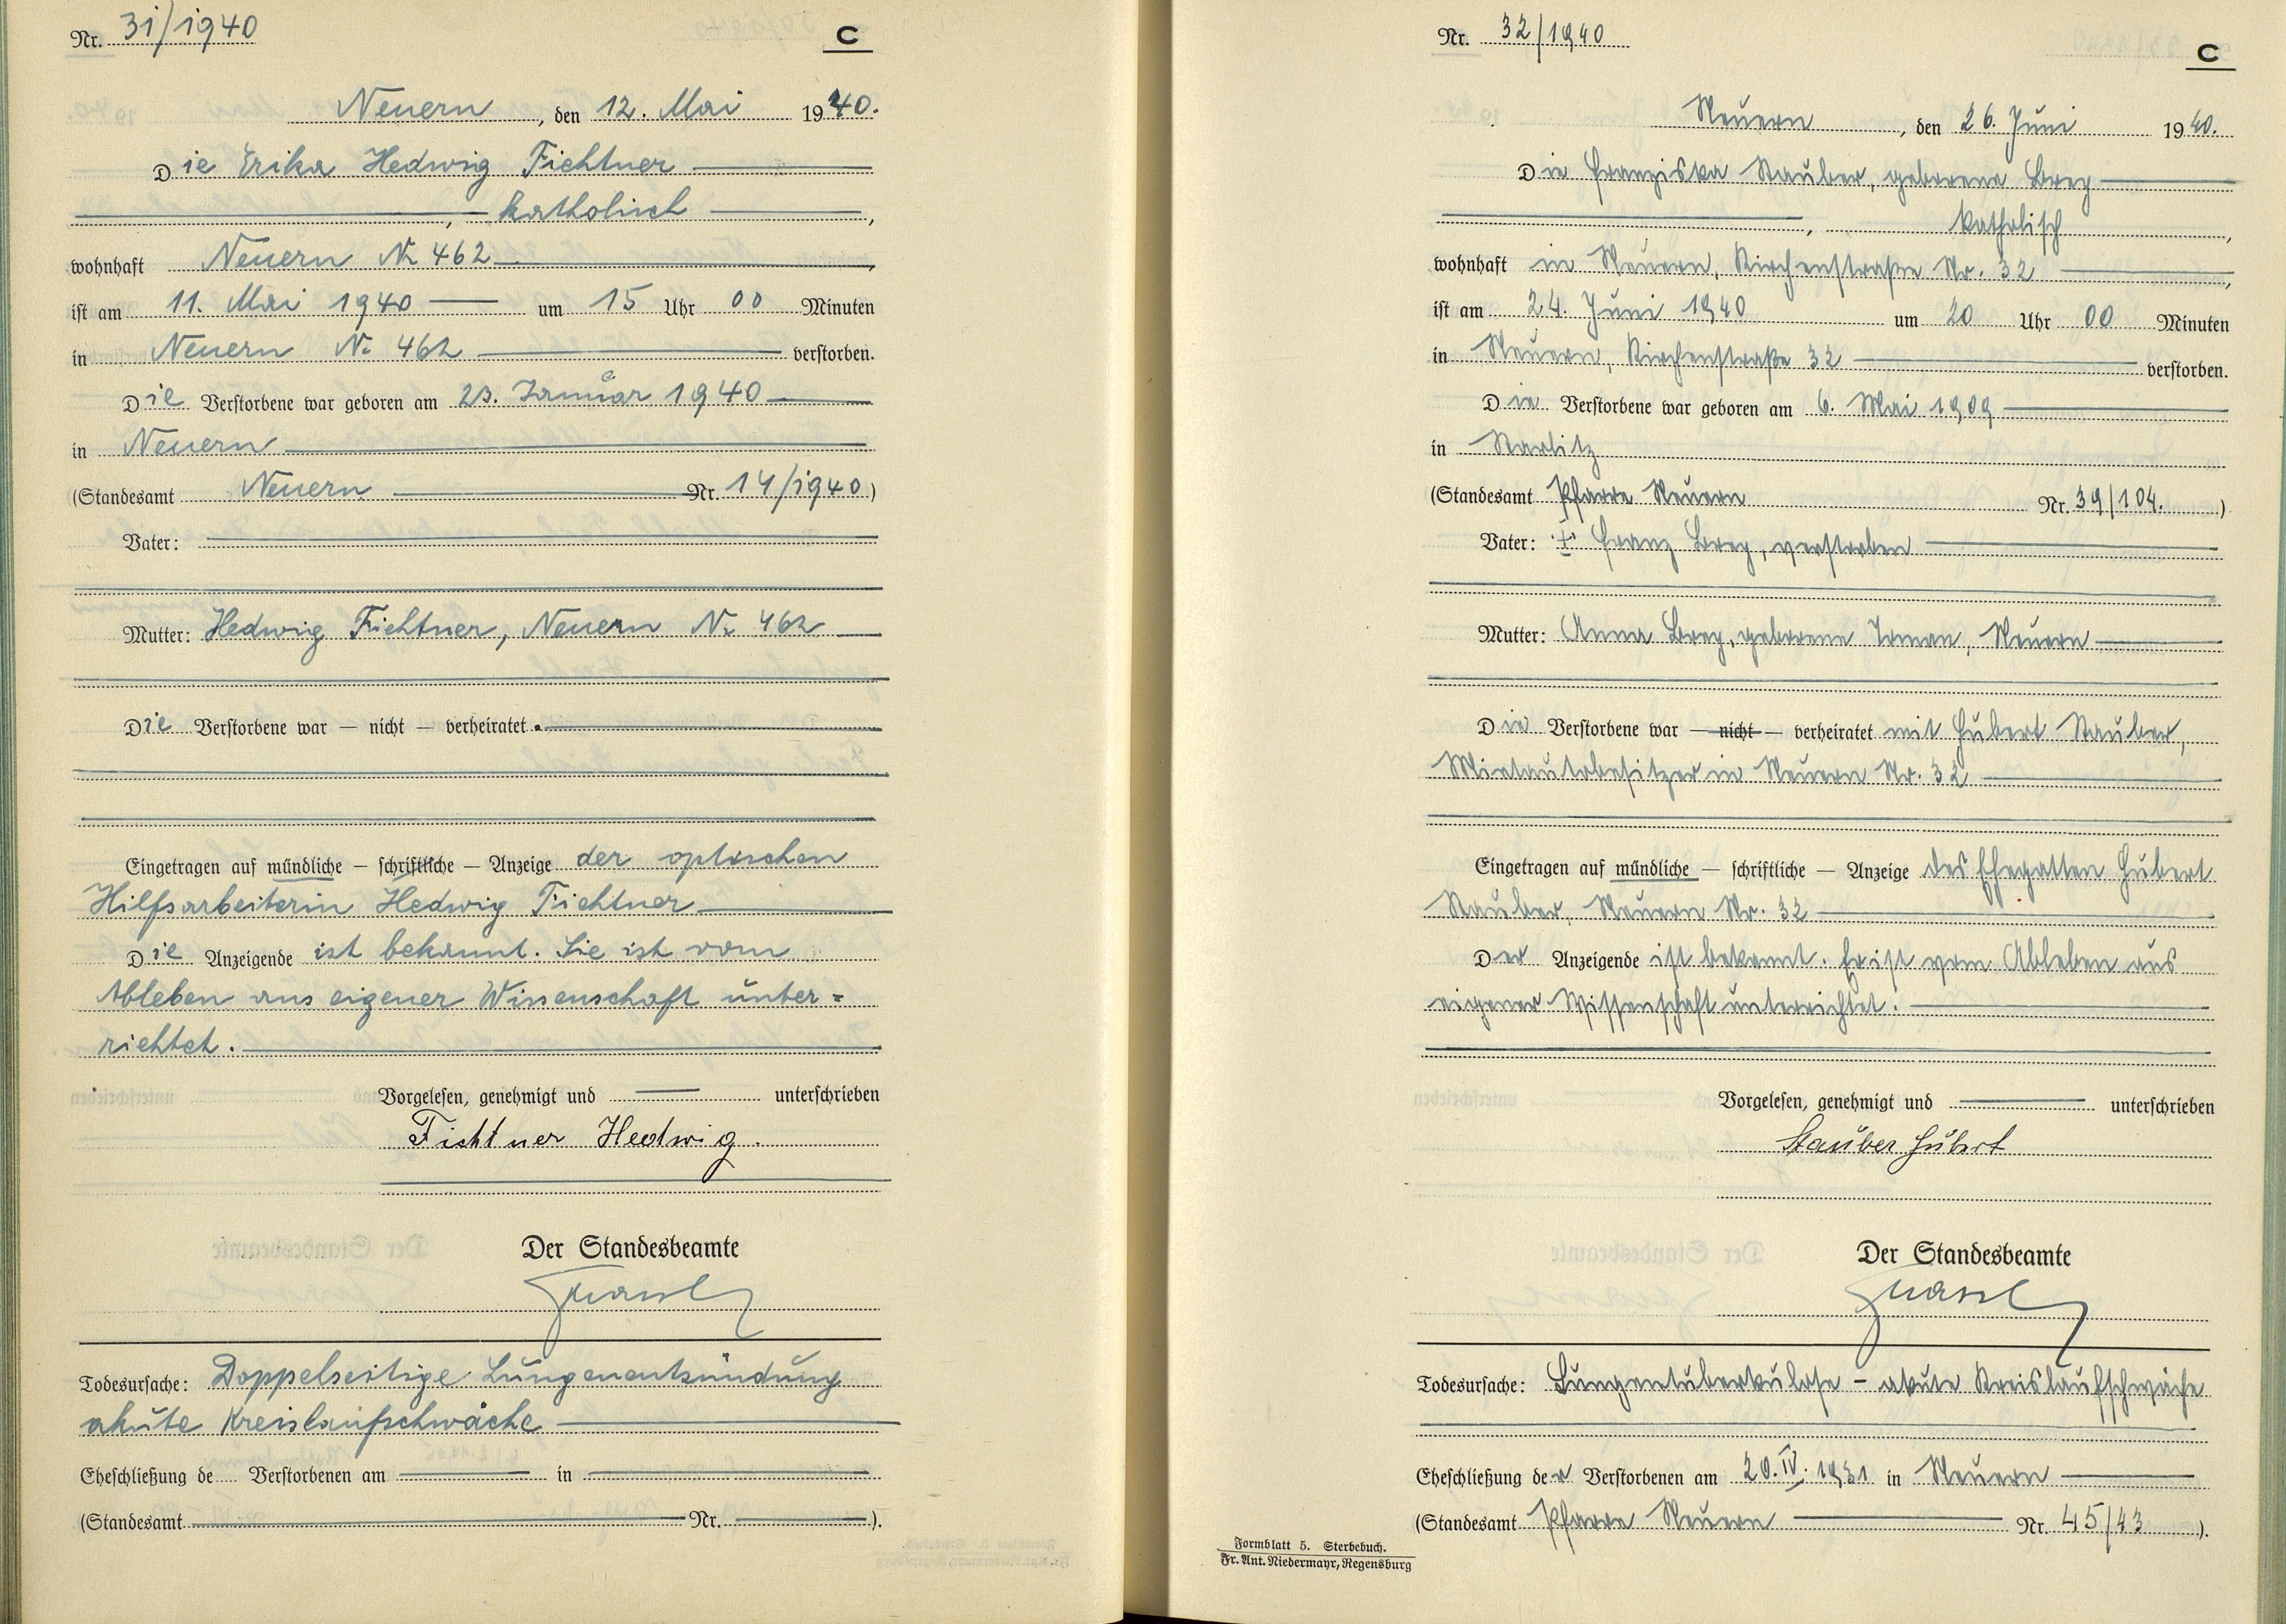 Nr. 31/1940
C
Neuern, den 12. Mai 1940.
Die Erika Hedwig Fichtner
, katholisch,
wohnhaft Neuern Nr 462,
ist am 11. Mai 1940 um 15 Uhr 00 Minuten
in Neuern Nr. 462 verstorben.
Die Verstorbene war geboren am 23. Januar 1940
in Neuern
(Standesamt Neuern Nr. 14/1940)
Vater:
Mutter: Hedwig Fichtner, Neuern Nr 462
Die Verstorbene war — nicht — verheiratet.
Eingetragen auf mündliche — schriftliche — Anzeige der optischen
Hilfsarbeiterin Hedwig Fichtner
Die Anzeigende ist bekannt. Sie ist vom
Ableben aus eigener Wissenschaft unter=
richtet.
Vorgelesen, genehmigt und unterschrieben
Fichtner Hedwig.
Der Standesbeamte
Todesursache: Doppelseitige Lungenentzündung
akute Kreislaufschwäche
Eheschließung de Verstorbenen am in
(Standesamt Nr. ).
Nr. 32/1940
C
Neuern, den 26. Juni 1940.
Die Franziska Stauber, geborene Brey
, katholisch,
wohnhaft in Neuern, Kirchenstraße Nr. 32,
ist am 24. Juni 1940 um 20 Uhr 00 Minuten
in Neuern, Kirchenstraße 32 verstorben.
Die Verstorbene war geboren am 6. Mai 1909
in
(Standesamt Pfarre Neuern Nr. 39/104.)
Vater: † Franz Brey, verstorben
Mutter: Anna Brey, geborene Neuern
Die Verstorbene war — nicht — verheiratet mit Hubert Stauber,
Mietautobesitzer in Neuern Nr. 32
Eingetragen auf mündliche — schriftliche — Anzeige des Ehegatten Hubert
Stauber, Neuern Nr. 32
Der Anzeigende ist bekannt. Er ist vom Ableben aus
eigener Wissenschaft unterrichtet.
Vorgelesen, genehmigt und unterschrieben
Stauber Hubert
Der Standesbeamte
Todesursache: Lungentuberkulose – akute Kreislaufschwäche
Eheschließung der Verstorbenen am 20. IV. 1931 in Neuern
(Standesamt Pfarre Neuern Nr. 45/43 ).
Formblatt 5. Sterbebuch.
Fr. Ant. Niedermayr, Regensburg